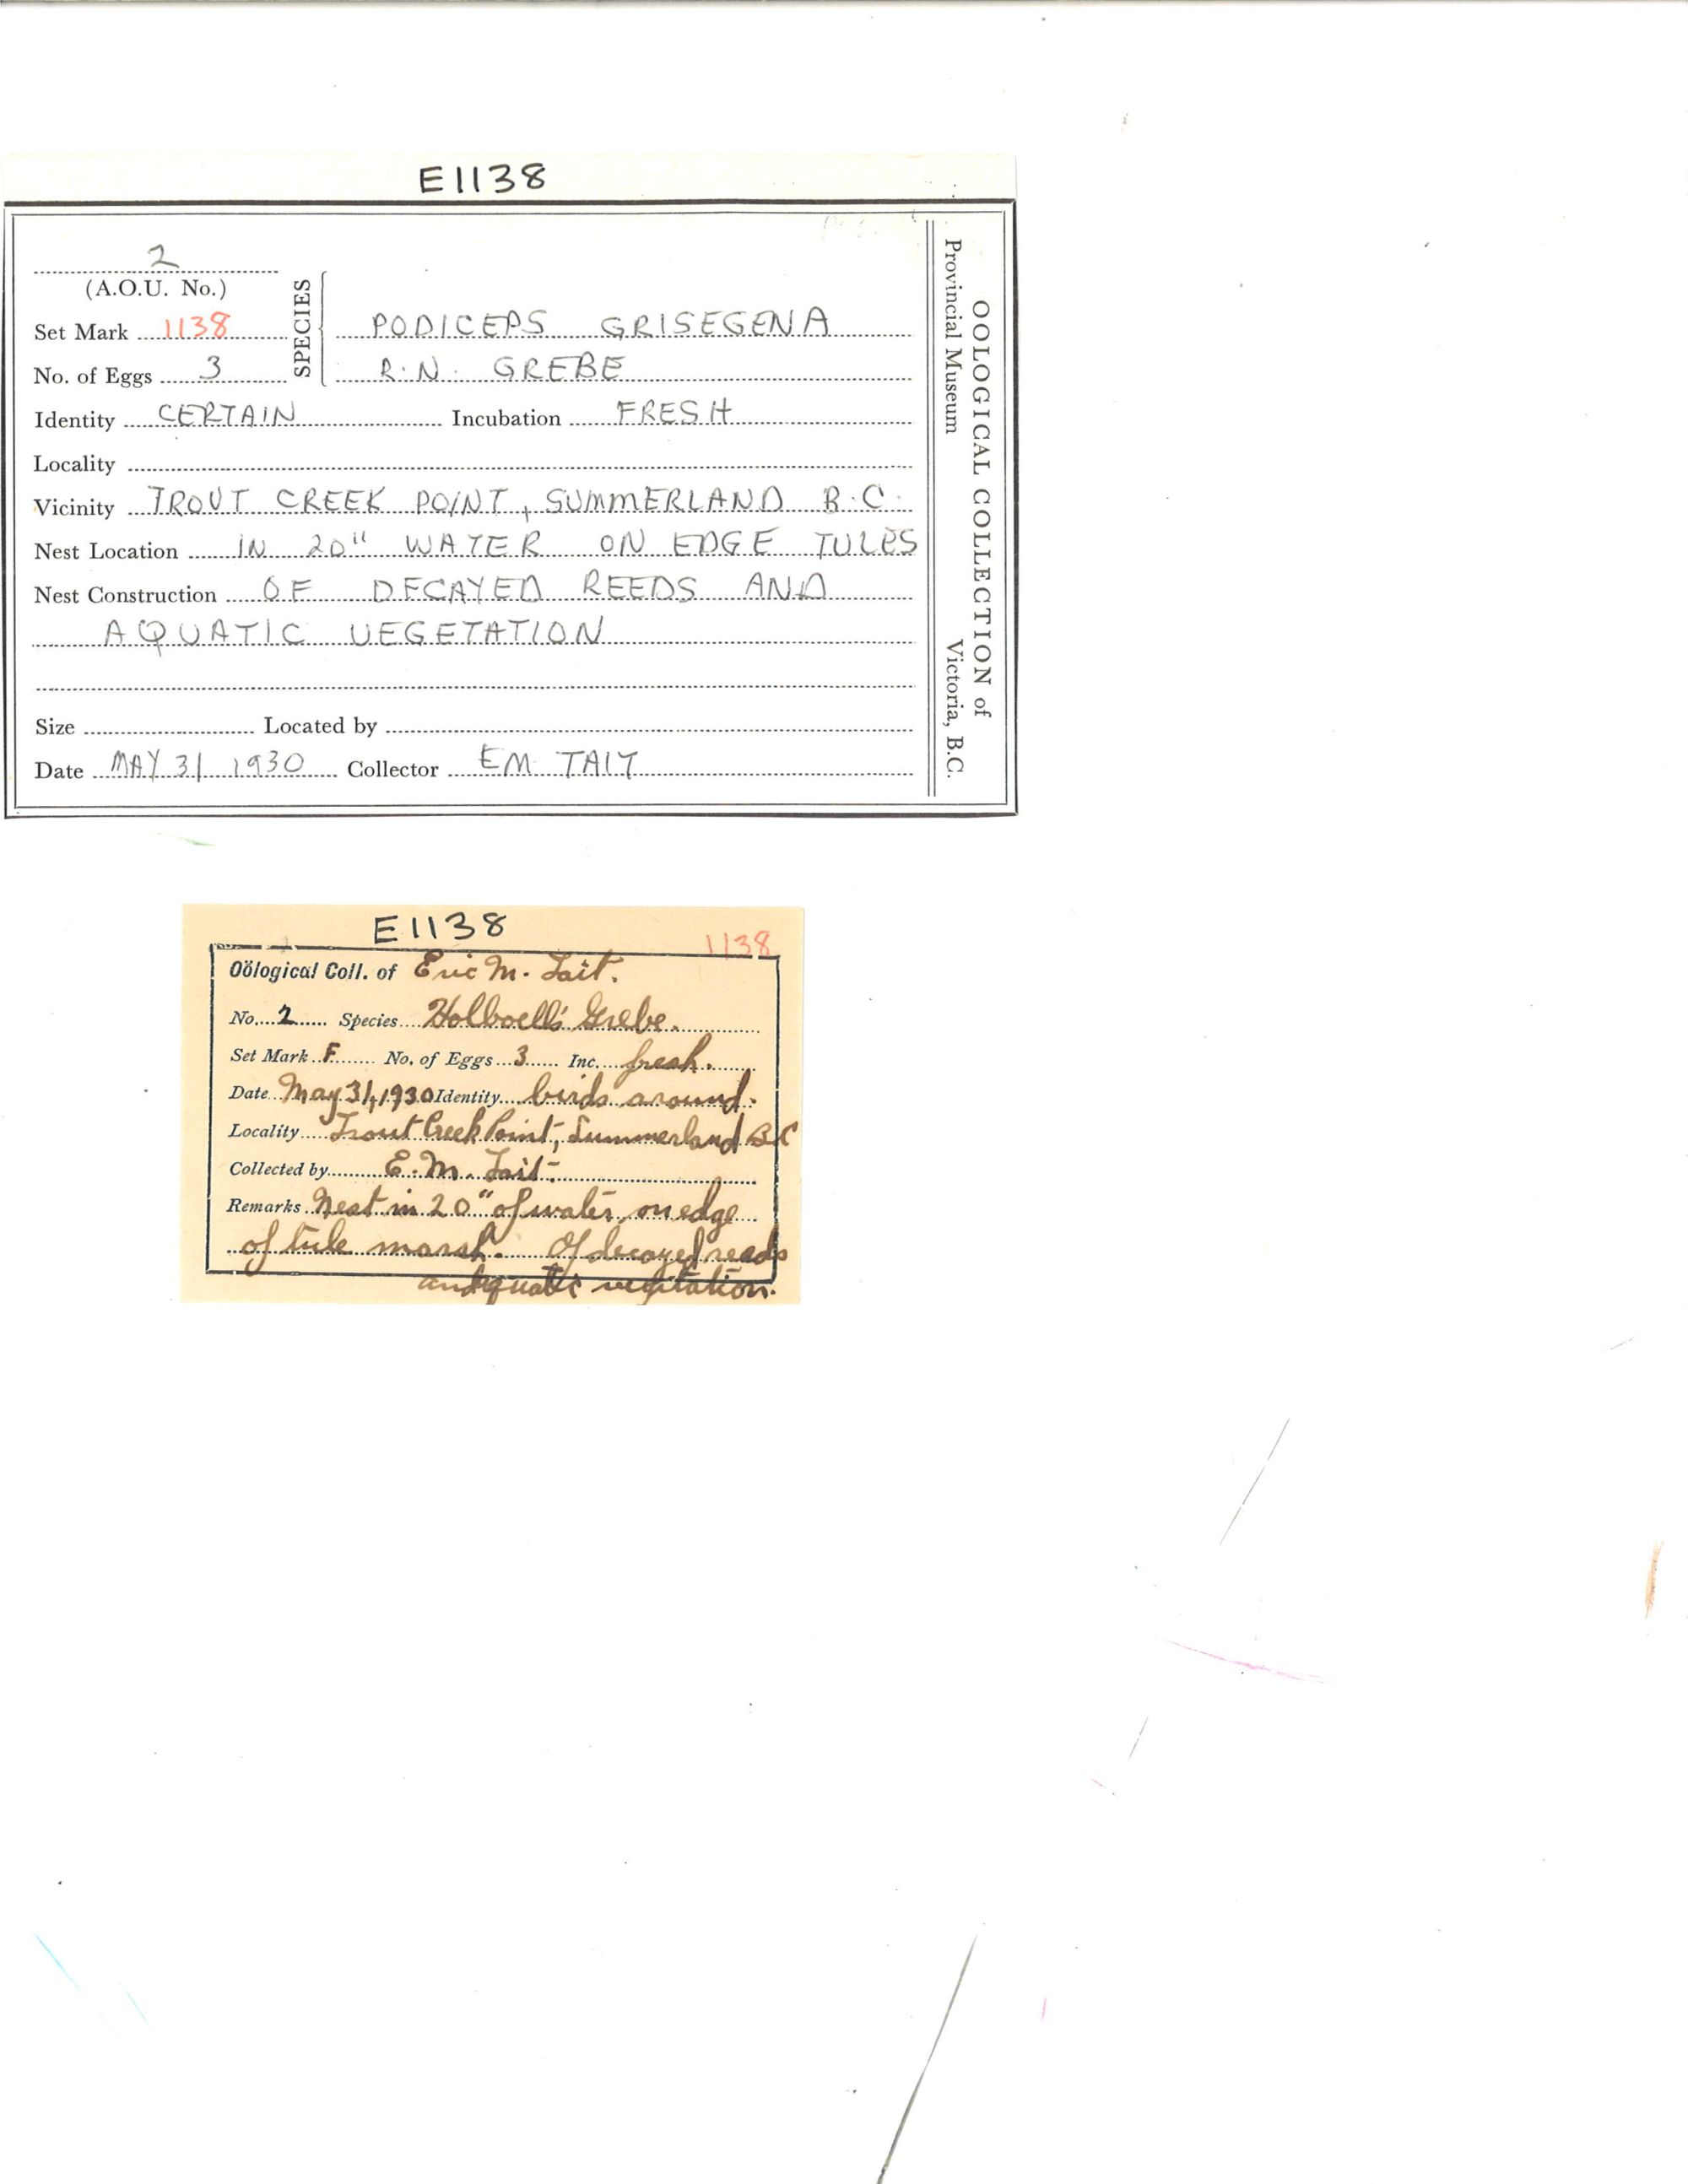 E1138
2
(A.O.U. No.)
SPECIES
Set Mark 1138
PODICEPS GRISEGENA
No. of Eggs 3
R.N. GREBE
Identity CERTAIN Incubation FRESH
Locality
Vicinity TROUT CREEK POINT, SUMMERLAND B.C.
Nest Location IN 20" WATER ON EDGE TULES
Nest Construction OF DECAYED REEDS AND
AQUATIC VEGETATION
Size Located by
Date MAY 31 1930 Collector EM TAIT
OOLOGICAL COLLECTION of
Provincial Museum Victoria, B.C.
E1138
1138
Oölogical Coll. of Eric M. Tait.
No. 2 Species Holboell's Grebe.
Set Mark F No. of Eggs 3 Inc. fresh.
Date May 31, 1930 Identity birds around.
Locality Trout Creek Point, Summerland BC
Collected by E. M. Tait.
Remarks Nest in 20" of water, on edge
of tule marsh. Of decayed reeds
and aquatic vegitation.